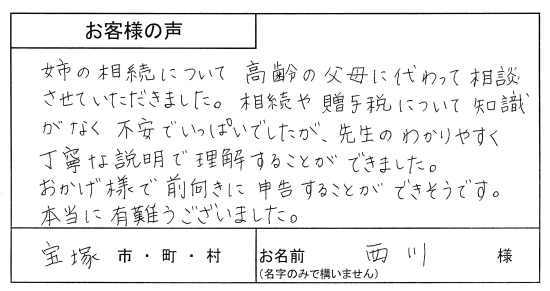 お客様の声
姉の相続について 高齢の父母に代わって相談
させていただきました。相続や贈与税について知識
がなく不安でいっぱいでしたが、先生のわかりやすく
丁寧な説明で理解することができました。
おかげ様で前向きに申告することができそうです。
本当に有難うございました。
宝塚 市・町・村 お名前 西川 様
(名字のみで構いません)